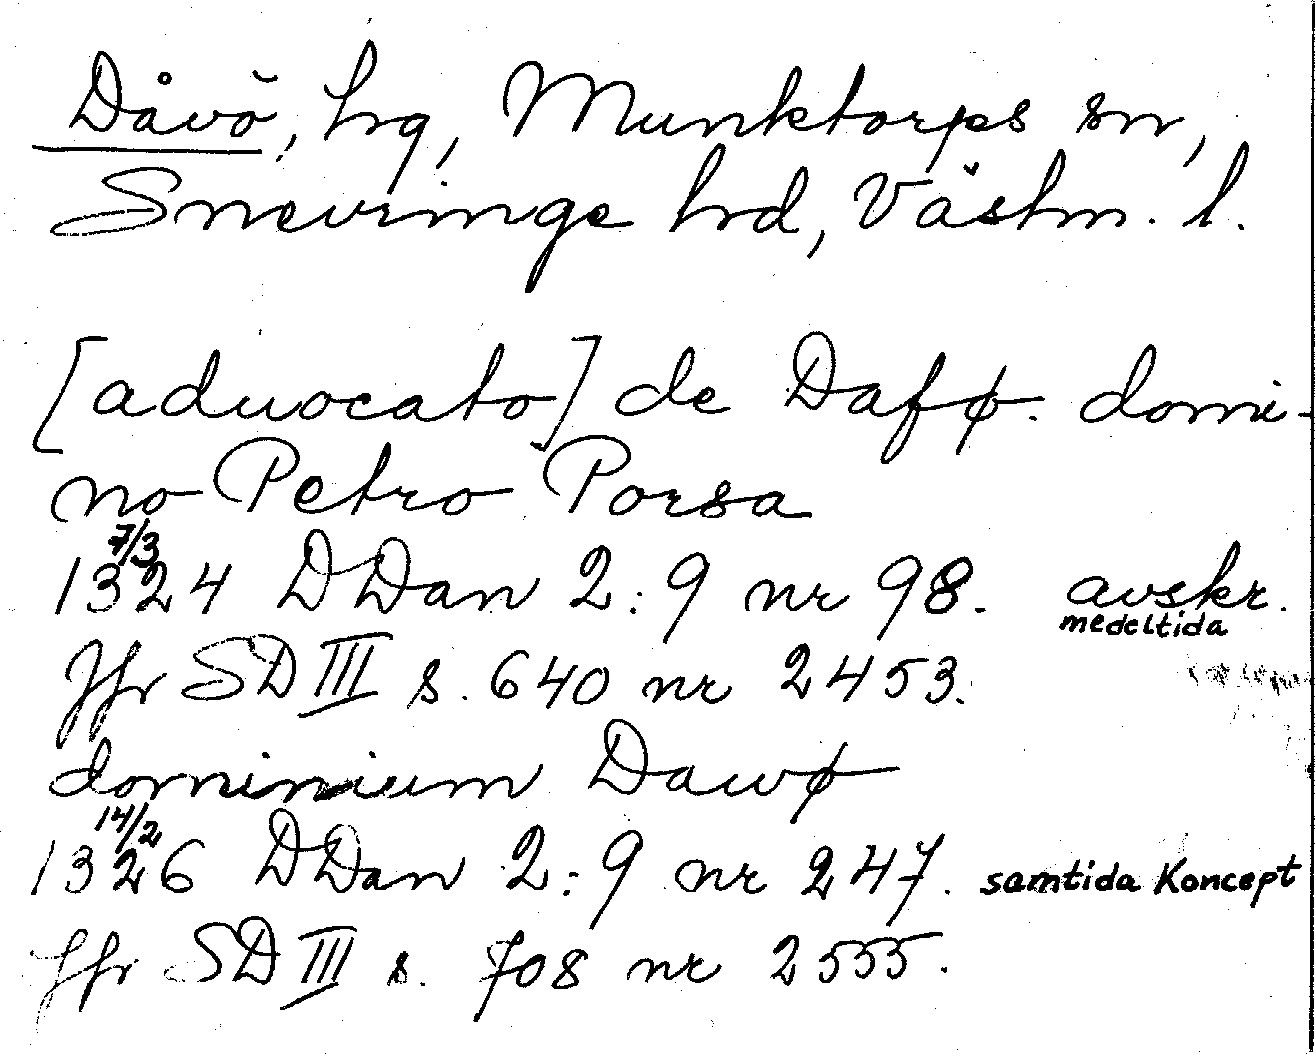 Dåvö, hg, Munktorps sn,
Snevringe hrd, Västm. l.
[aduocato] de Dafø. domi-
no Petro Porsa
7/3
1324 DDan 2:9 nr 98. avskr.
medeltida
Jfr SD III s. 640 nr 2453.
dominium Dawø
14/2
1326 DDan 2:9 nr 247. samtida Koncept
Jfr SD III s. 708 nr 2555.